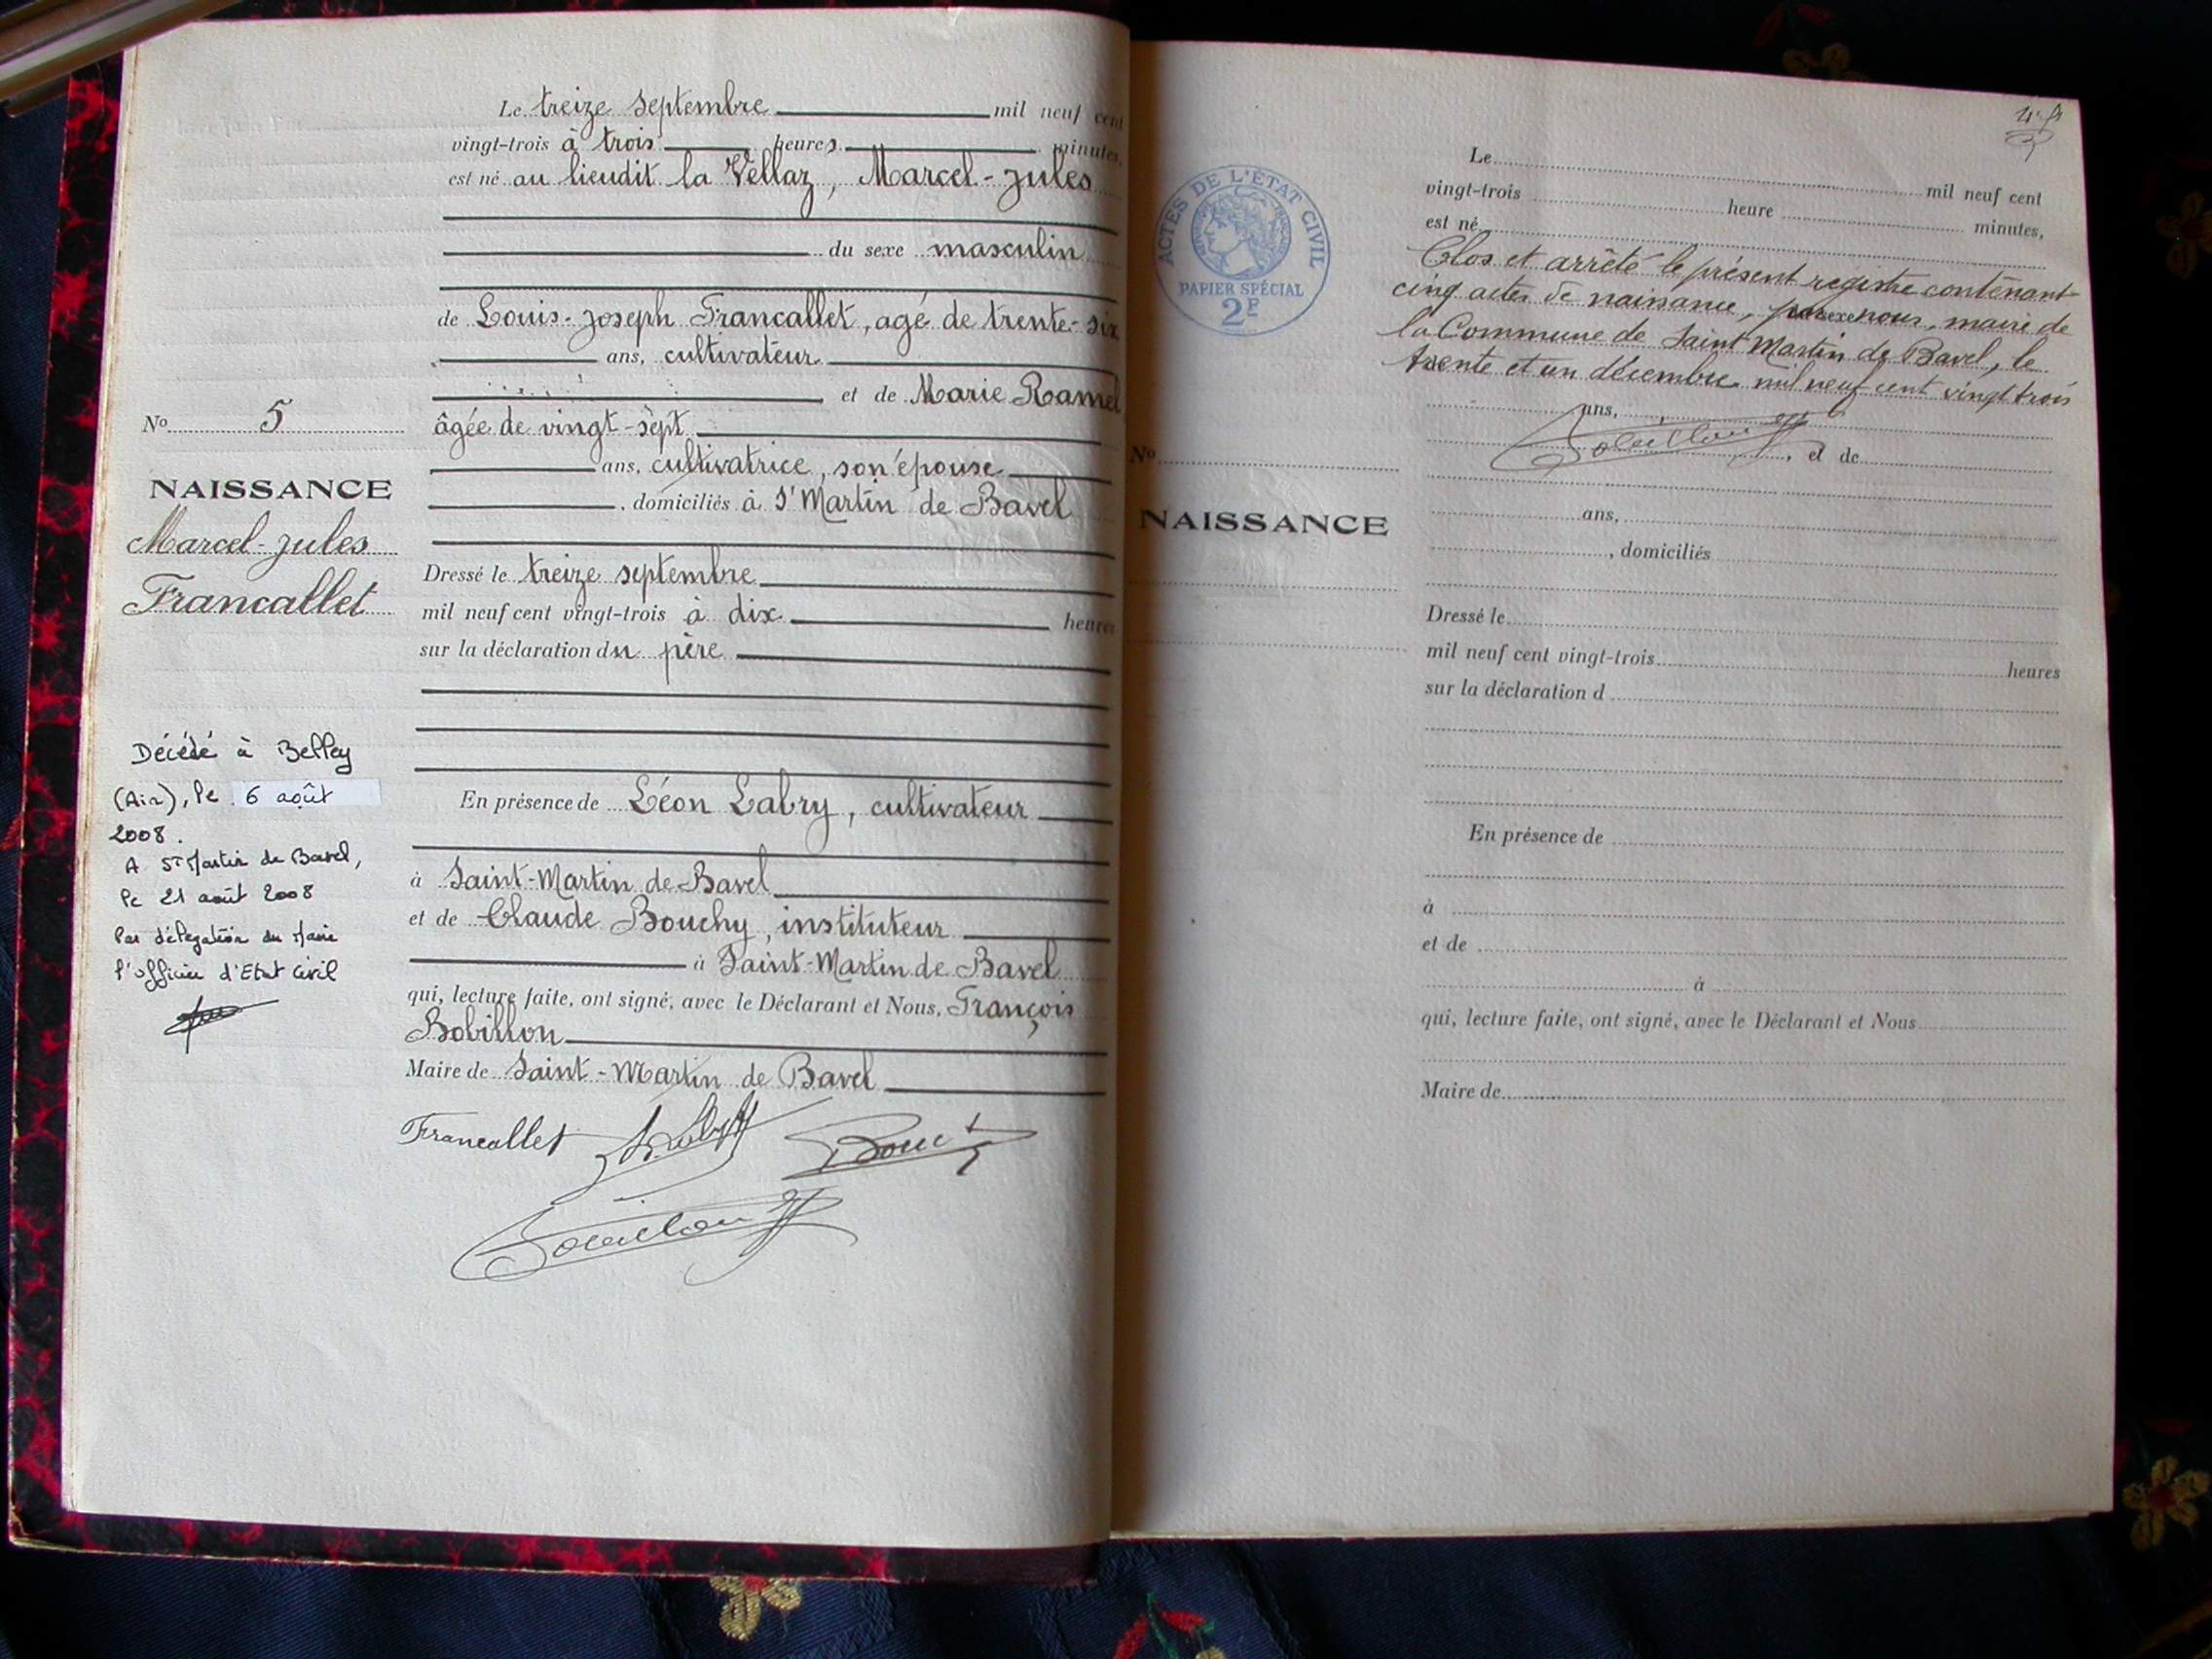 Le treize septembre mil neuf cent
vingt-trois à trois heures minutes,
est né au lieudit la Vellaz, Marcel-Jules
du sexe masculin
de Louis-Joseph Francallet, agé de trente-six
ans, cultivateur
et de Marie Ramel
âgée de vingt-sept
ans, cultivatrice, son épouse
, domiciliés à St Martin de Bavel
Dressé le treize septembre
mil neuf cent vingt-trois à dix heures
sur la déclaration du père
En présence de Léon Labry, cultivateur
à Saint-Martin de Bavel
et de Claude Bouchy, instituteur
à Saint-Martin de Bavel
qui, lecture faite, ont signé, avec le Déclarant et Nous, François
Bobillon
Maire de Saint-Martin de Bavel
Francallet
No 5
NAISSANCE
Marcel-Jules
Francallet
Décédé à Belley
(Ain), le 6 août
2008.
A St Martin de Bavel,
le 21 août 2008
Par délégation du Maire
l'officier d'Etat Civil
ACTES DE L'ÉTAT CIVIL
PAPIER SPÉCIAL
2F
No
NAISSANCE
Le mil neuf cent
vingt-trois heure minutes,
est né
Clos et arrêté le présent registre contenant
cinq actes de naissance, par nous, maire de
la Commune de Saint Martin de Bavel, le
trente et un décembre mil neuf cent vingt trois
ans,
, et de
ans,
, domiciliés
Dressé le
mil neuf cent vingt-trois heures
sur la déclaration d
En présence de
à
et de
à
qui, lecture faite, ont signé, avec le Déclarant et Nous
Maire de